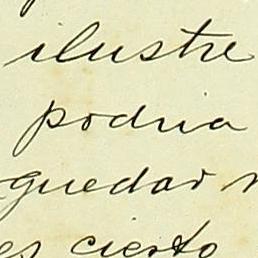 ilustre
podria
quedar
es cierto